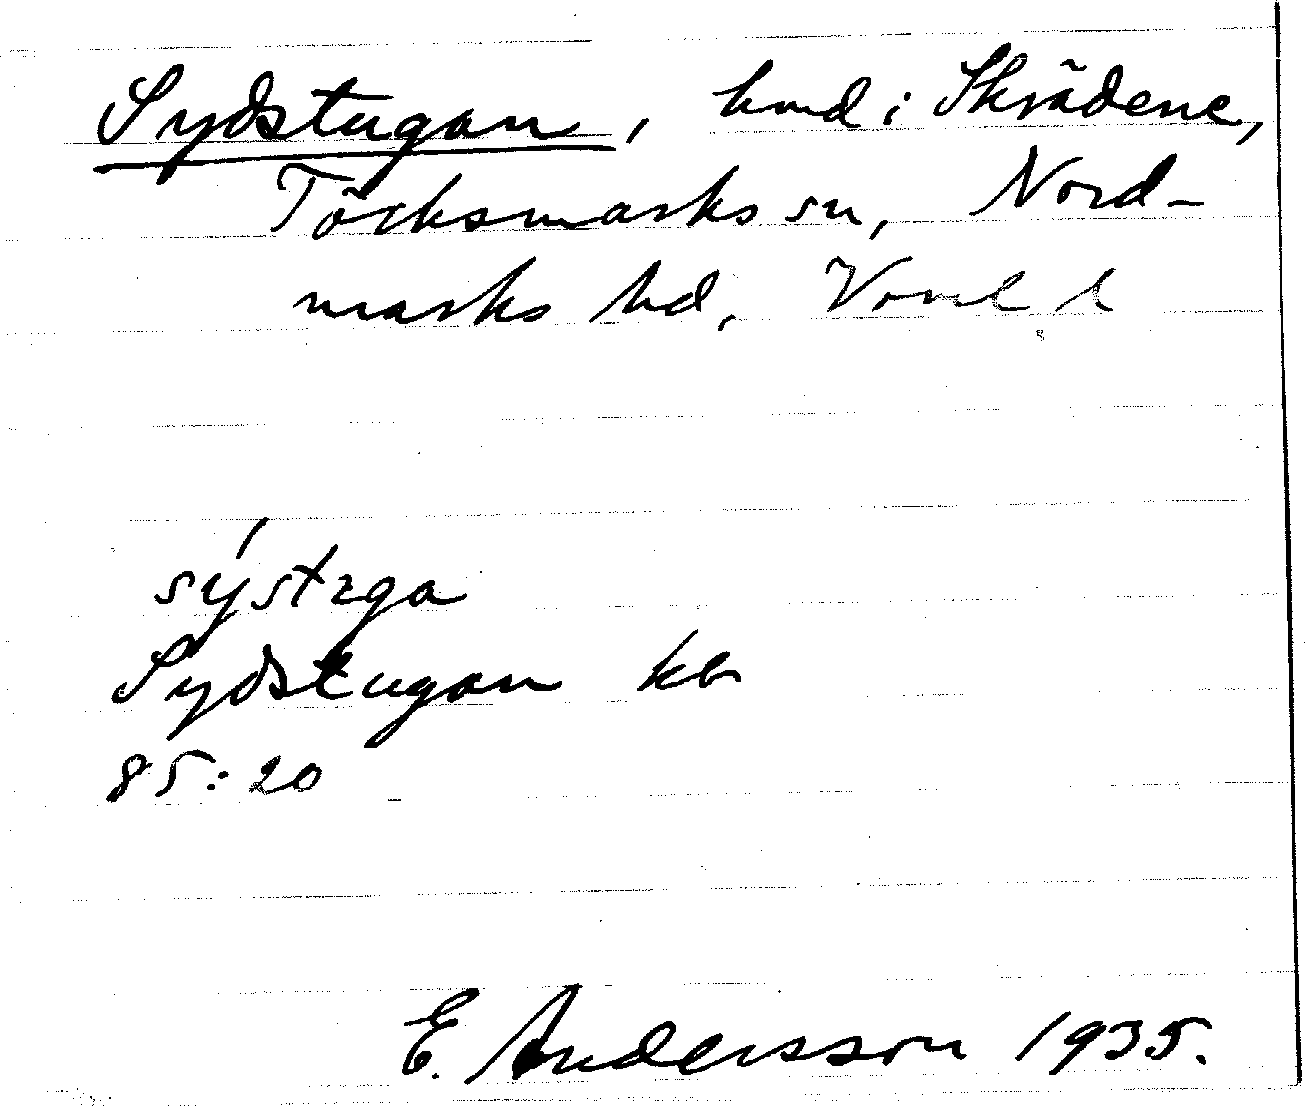 Sydstugan, hmd i Skrädene,
Töcksmarks sn, Nord-
marks hd, Värml l
sýstꝛga
Sydstugan kb
85:20
E. Andersson 1935.